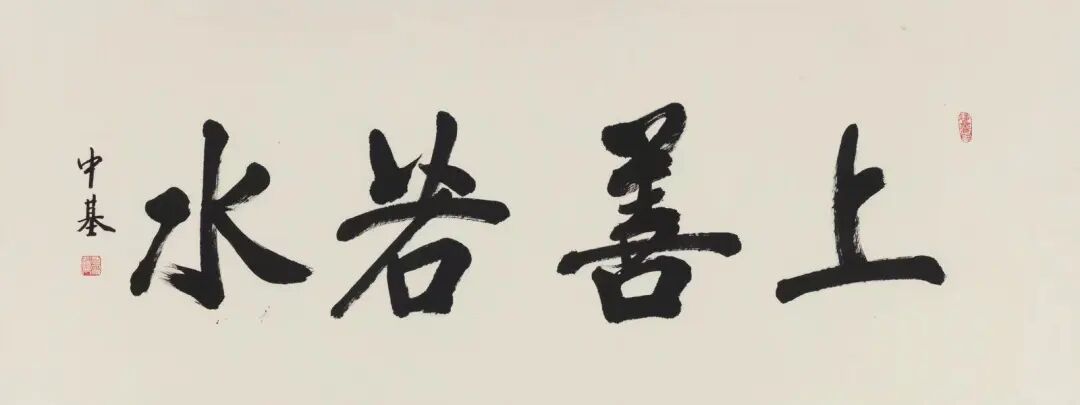 上善若水
中基